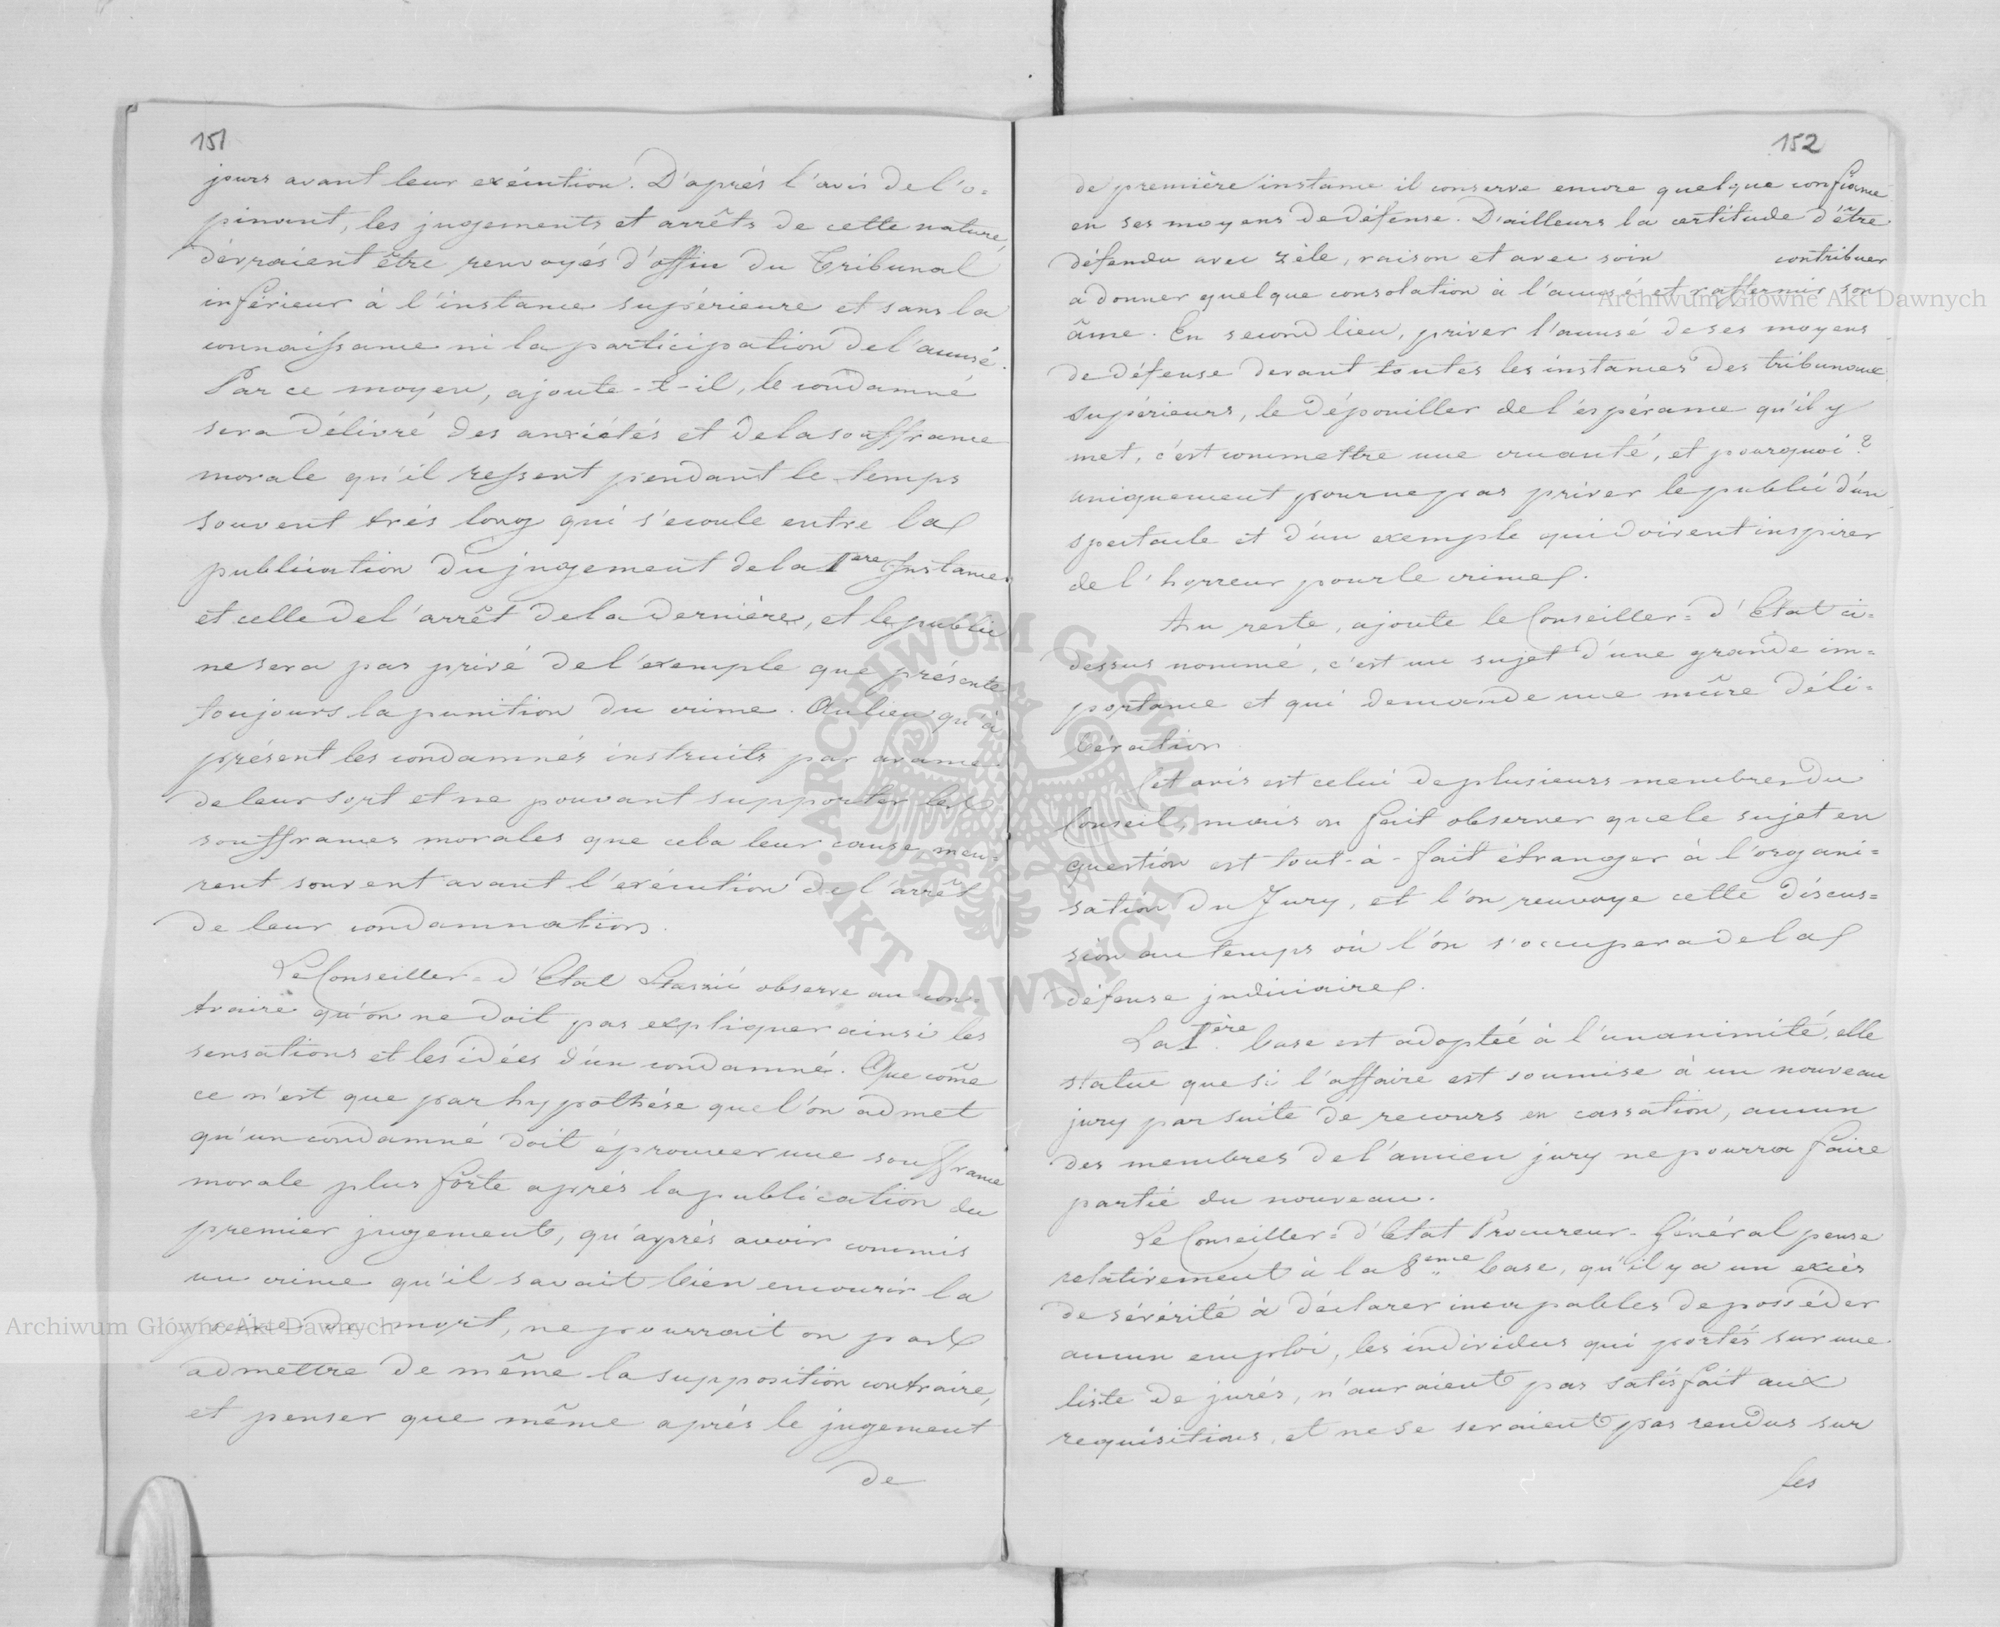 151
jours avant leur exécution. D'après l'avis de l'o=
pinant, les jugements et arrêts de cette nature,
dévraient être renvoyés d'office du Tribunal
inférieur à l'instance supérieure et sans la
connaissance ni la participation de l'accusé.
Par ce moyen, ajoute-t-il, le condamné
sera délivré des anxiétés et de la souffrance
morale qu'il ressent pendant le temps
souvent très long qui s'écoule entre la
publication du jugement de la 1ere Instance
et celle de l'arrêt de la dernière, et le public
ne sera pas privé de l'exemple que présente
toujours la punition du crime. Au lieu qu'à
présent les condamnés instruits par avance
de leur sort et ne pouvant supporter les
souffrances morales que cela leur cause, meu=
rent souvent avant l'exécution de l'arrêt
de leur condamnation.
Le Conseiller-d'Etat observe au con=
traire qu'on ne doit pas expliquer ainsi les
sensations et les idées d'un condamné. Que côme
ce n'est que par hypothése que l'on admet
qu'un condamné doit éprouver une souffrance
morale plus forte après la publication du
premier jugement, qu'après avoir commis
un crime qu'il savait bien encourir la
peine de mort, ne pourrait on pas
admettre de même la supposition contraire,
et penser que même après le jugement
de
152
de première instance il conserve encore quelque confiance
en ses moyens de défense. D'ailleurs la certitude d'être
défendu avec zèle, raison et avec soin contribuer
a donner quelque consolation à l'accusé et raffermir son
âme. En second lieu, priver l'accusé de ses moyens
de défense devant toutes les instances des tribunaux
supérieurs, le dépouiller de l'éspérance qu'il y
met, c'est commettre une cruauté, et pourquoi?
uniquement pour ne pas priver le public d'un
spectacle et d'un exemple qui doivent inspirer
de l'horreur pour le crime.
Au reste, ajoute le Conseiller=d'Etat ci=
dessus nommé, c'est un sujet d'une grande im=
portance et qui demande une mûre déli=
bération.
Cet avis est celui de plusieurs membres du
Conseil, mais on fait observer que le sujet en
question est tout-à-fait étranger à l'organi=
sation du Jury, et l'on renvoye cette discus=
sion au temps où l'on s'occupera de la
défense judiciaire.
La 1ère base est adoptée à l'unanimité, elle
statue que si l'affaire est soumise à un nouveau
jury par suite de recours en cassation, aucun
des membres de l'ancien jury ne pourra faire
partie du nouveau.
Le Conseiller=d'Etat Procureur-Général pense
relativement à la 8eme base, qu'il y a un excès
de sévérité à déclarer incapables de posséder
aucun emploi, les individus qui portés sur une
liste de jurés, n'auraient pas satisfait aux
requisitions, et ne se seraient pas rendus sur
les
Archiwum Główne Akt Dawnych
Archiwum Główne Akt Dawnych
ARCHIWUM GŁÓWNE AKT DAWNYCH